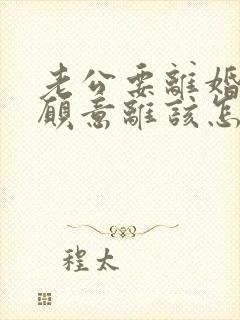 老公要離婚
願意離該怎
程太